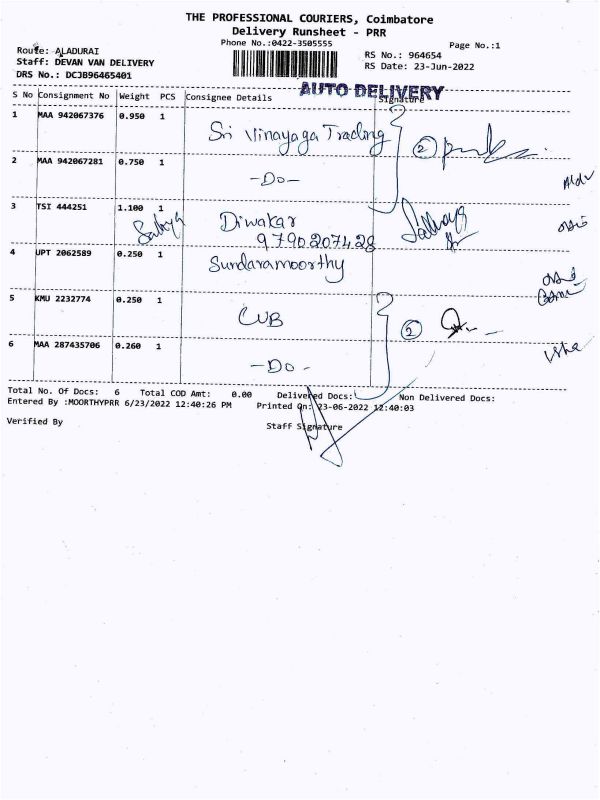 THE PROFESSIONAL COURIERS, Coimbatore
Delivery Runsheet - PRR
Phone No.:0422-3505555
Page No.:1
Route: ALADURAI
Staff: DEVAN VAN DELIVERY
DRS No.: DCJB96465401
RS No.: 964654
RS Date: 23-Jun-2022
AUTO DELIVERY
S No Consignment No Weight PCS Consignee Details Signature
1 MAA 942067376 0.950 1 Sri Vinayaga Trading
2
2 MAA 942067281 0.750 1 -Do-
3 TSI 444251 1.100 1 Diwakar
9790207428
4 UPT 2062589 0.250 1 Sundaramoorthy
5 KMU 2232774 0.250 1 CUB
2
6 MAA 287435706 0.260 1 -Do-
Total No. Of Docs: 6 Total COD Amt: 0.00 Delivered Docs: Non Delivered Docs:
Entered By :MOORTHYPRR 6/23/2022 12:40:26 PM Printed On: 23-06-2022 12:40:03
Verified By Staff Signature